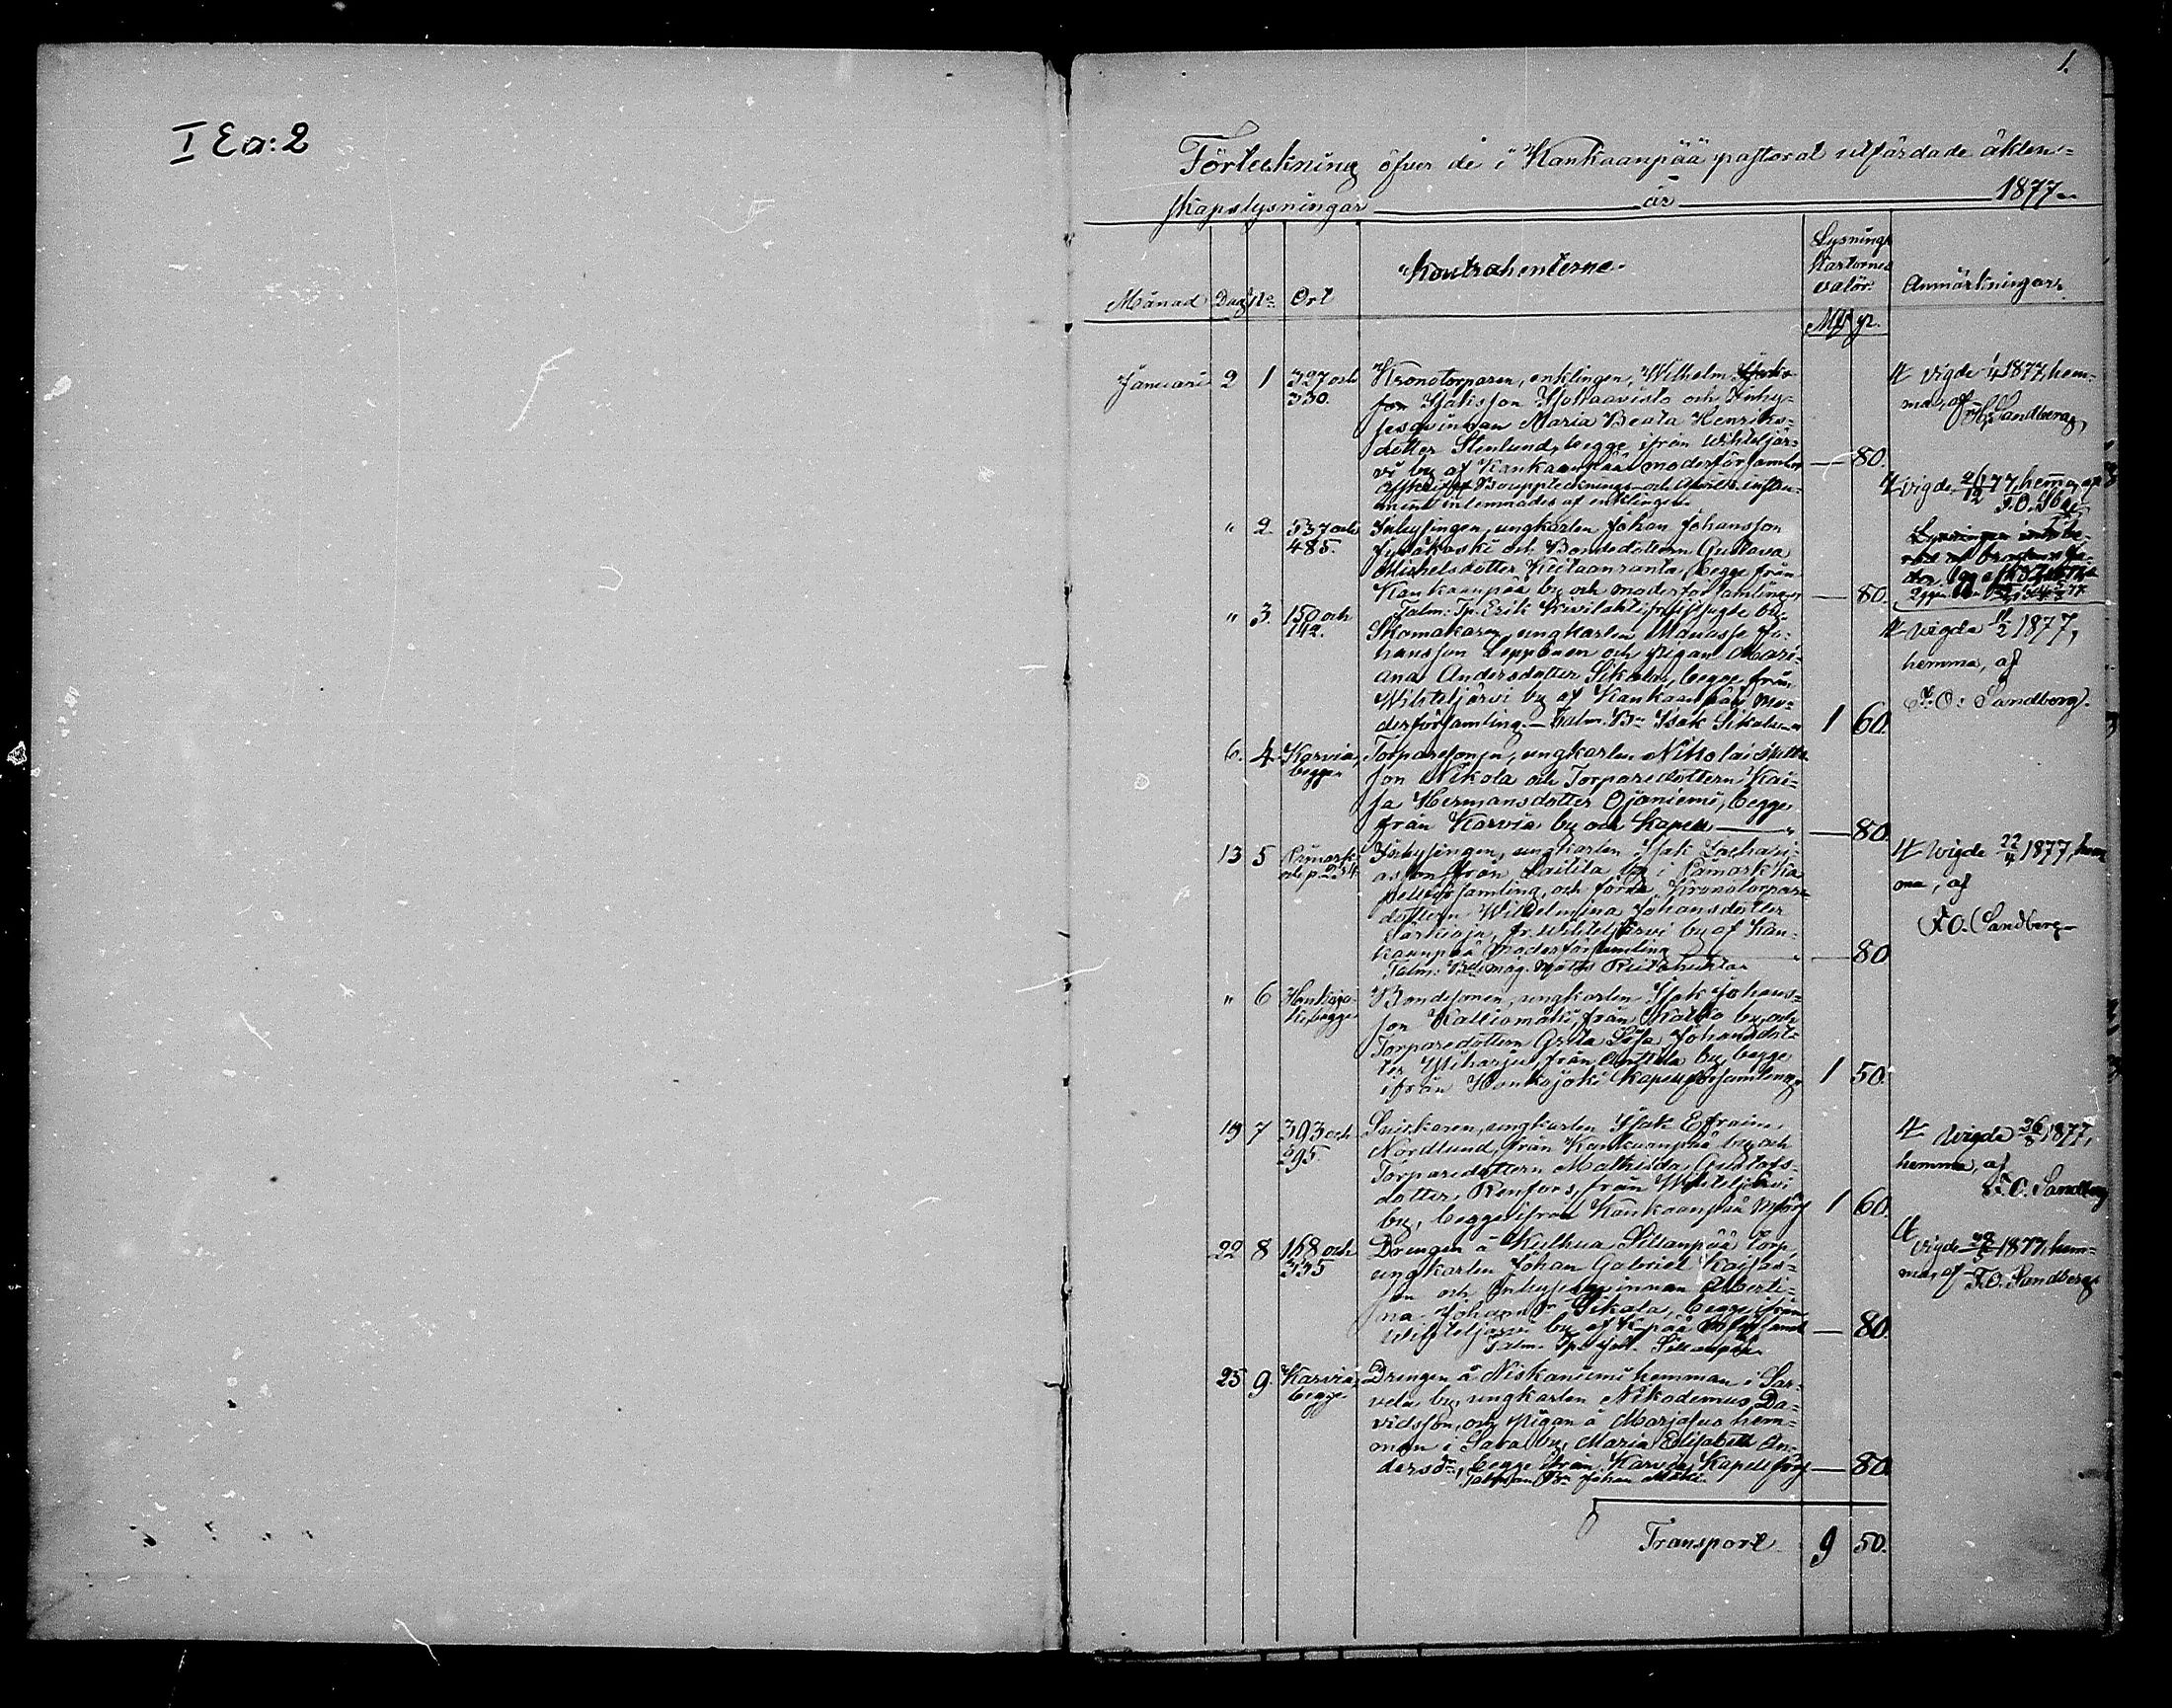 I Ea:2
1.
Förteckning öfver de i Kankaanpää pastorat utfärdade äkten-
skapslysningar år 1877
Månad Dag No Ort Kontrahenterne Lysnings Kartornes valör Anmärkningar
Mk p.
Januari 2 1 327 och Kronotorparen, enklingen, Wilhelm
330. Isaksson och Inhy-
sesqvinnan Maria Beata Henriks-
dotter Stenlund, begge ifrån Wihteljär-
vi by af Kankaanpää moderförsamling — 80.
Bouppteckning och
inlemnades af enklingen.
Vigde 1877, hem-
ma, af
Sandberg
" 2. 537 och Inhysingen, ungkarlen Johan Johansson
485. Jyläkoski och Bondedottern Gustava
Michelsdotter begge från
Kankaanpää by och moderförsamling — 80.
Talm. Tp. Erik
Vigde 77, hemma, af
F.O.
Lysningen
" 3. 150 och
142. Skomakaren, ungkarlen Manasse Jo-
hansson Lepponen och pigan Mari-
ana Andersdotter Sikala, begge från
Wihteljärvi by af Kankaanpää mo-
derförsamling. — Talm. Bn Isak Sikala 1 60.
Vigde 11/2 1877,
hemma, af
F.O. Sandberg.
6. 4. Karvia, Torparesonen, ungkarlen Nikolai Matts-
begge son Nikola och Torparedottern Kai-
sa Hermansdotter Ojaniemi, begge
från Karvia by och Kapell — 80.
13 5 Påmark Inhysingen, ungkarlen Isak Zachari-
och p. 234 asson från Laitila by i Påmark Ka-
pellförsamling, och förra Kronotorpare-
dottern Wilhelmina Johansdotter
fr. Wihteljärvi by af Kan-
kaanpää moderförsamling — 80
Talm.
Vigde 22/4 1877, hem
ma, af
F.O. Sandberg
" 6 Honkajo- Bondesonen, ungkarlen Isak Johans-
ki, begge son Kalliomäki, från by och
Torparedottern Greta Lisa Johansdot-
ter Yliharju, från Anttila by, begge
ifrån Honkajoki Kapellförsamling 1 50.
19 7 393 och Snickaren, ungkarlen Isak Efraim
595. Nordlund, från Kankaanpää by och
Torparedottern Mathilda Gustafs-
dotter Renfors, från Wihteljärvi
by, begge ifrån Kankaanpää Mförs 1 60.
Vigde 26/8 1877,
hemma, af
F.O. Sandberg
22 8 168 och Drengen å Kulhua Sillanpää torp,
335 ungkarlen Johan Gabriel
son och Inhysesqvinnan Alberti-
na Johansdr Sikala, begge ifrån
Wihteljärvi by af K:pää — 80.
Talm. Tp. Sillanpää
Vigde 1877, hem-
ma, af F.O. Sandberg
25 9. Karvia, Drengen å Niskaniemi hemman i Sar-
begge vela by, ungkarlen Nikodemus Da-
vidsson, och pigan å Marjasuo hem-
man i Sara by, Maria Elisabeth An-
dersdr, begge ifrån Karvia Kapellförs — 80
Talman Bn Johan
Transport 9 50.